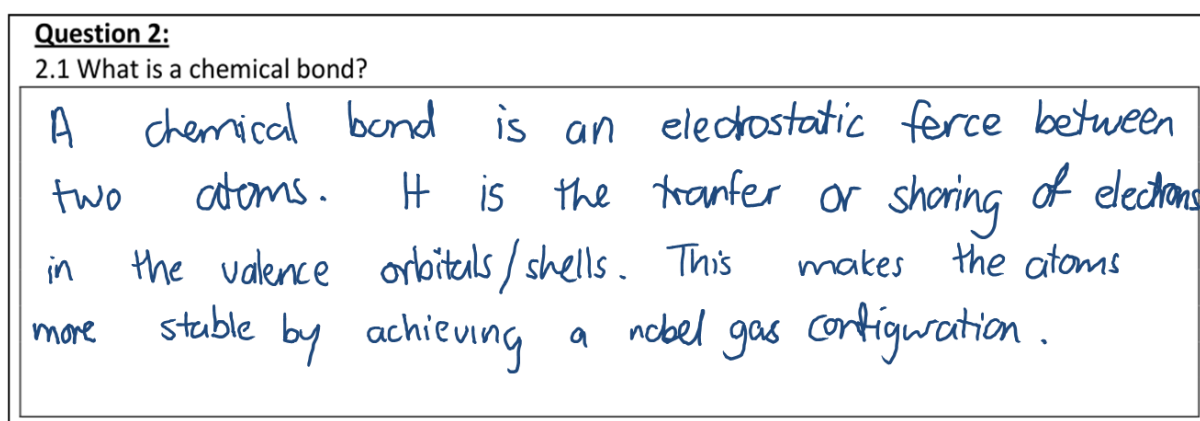 Question 2:
2.1 What is a chemical bond?
A chemical bond is an electrostatic force between
two atoms. It is the tranfer or sharing of electrons
in the valence orbitals/shells. This makes the atoms
more stable by achieving a nobel gas configuration.